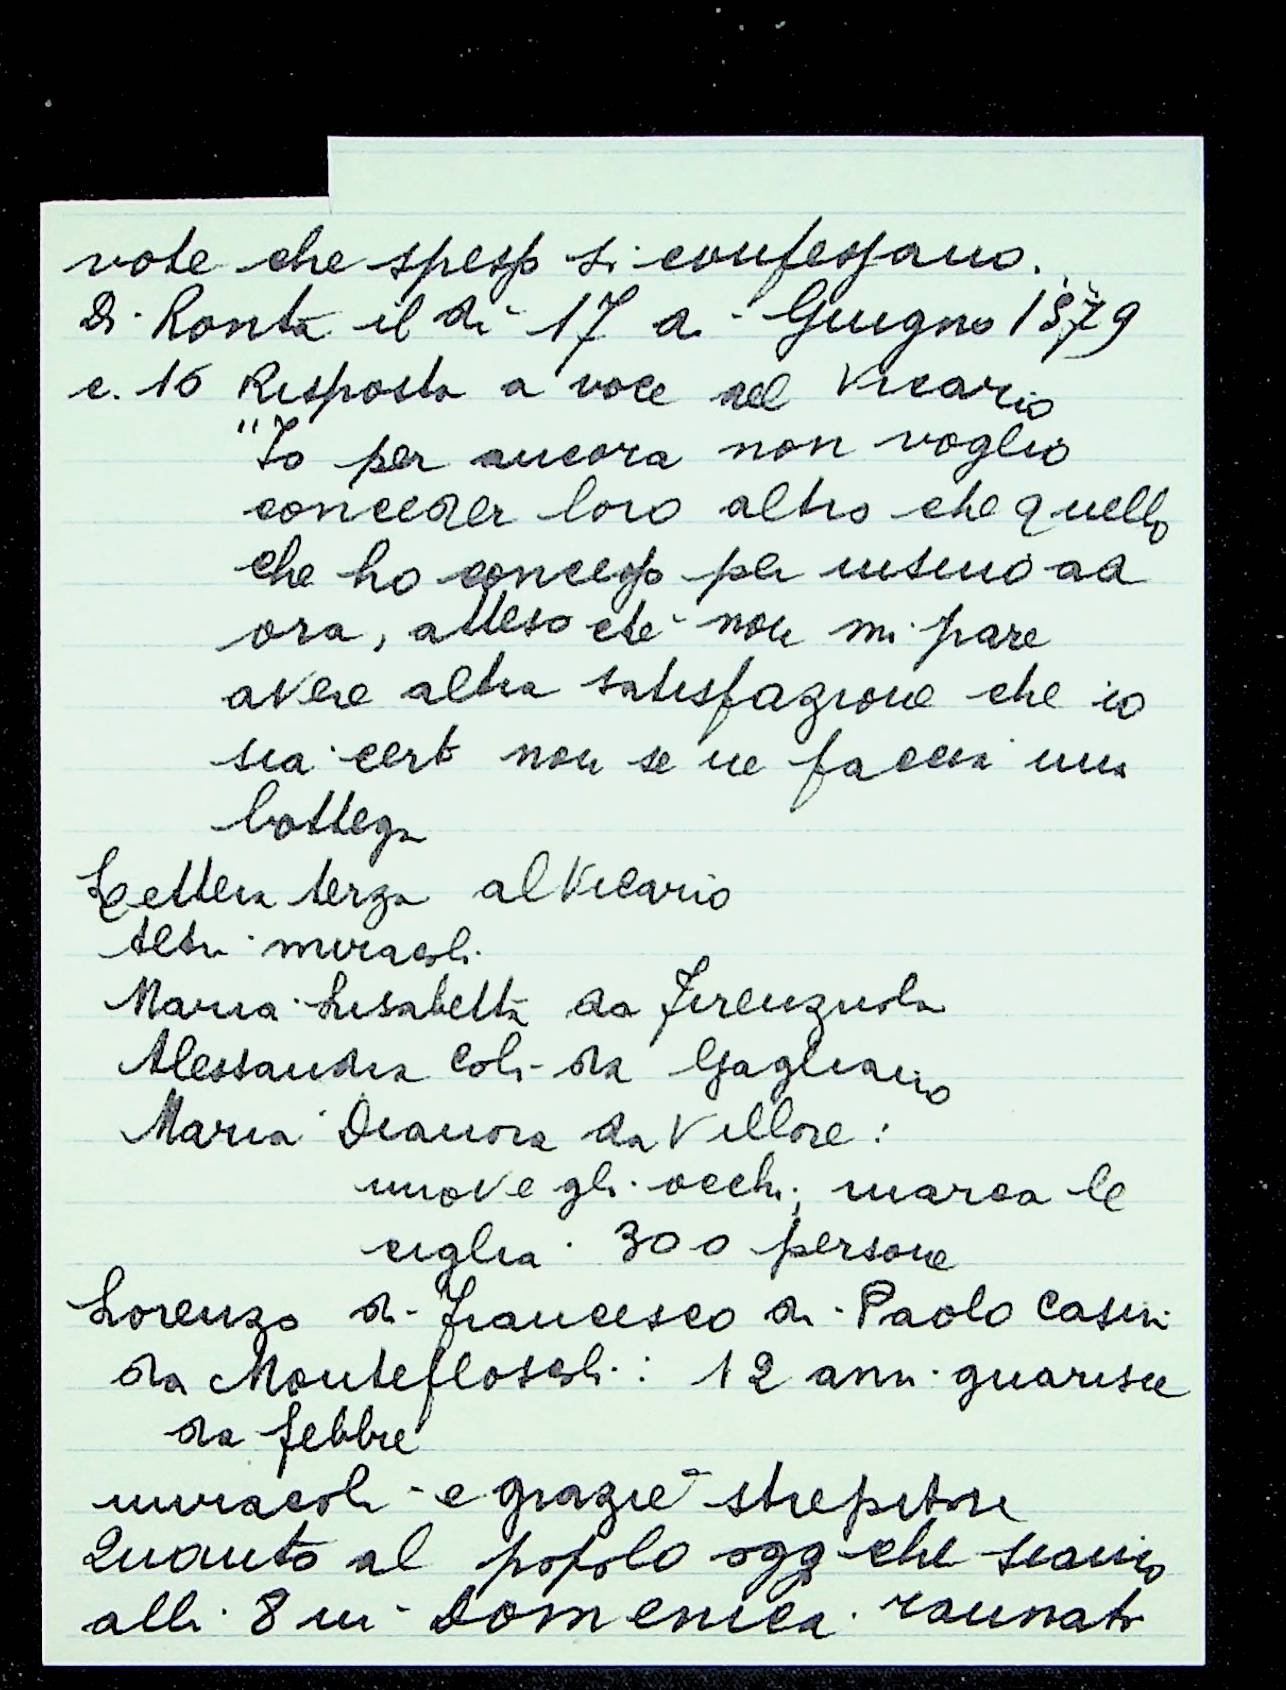 vote che spesso si confessano.
Di Ronta il di 17 di Giugno 1579
c. 16 Risposta a voce del Vicario
"Io per ancora non voglio
conceder loro altro che quello
che ho concesso per insino ad
ora, atteso che non mi pare
avere altra satisfazione che io
sia certo non se ne faccia una
bottega
Lettera terza al Vicario
Altri miracoli
Maria Lisabetta da Firenzuola
Alessandra Coli da Gagliano
Maria Dianora da Villore:
muove gli occhi, inarca le
ciglia. 300 persone
Lorenzo di Francesco di Paolo Casini
da Montefloscoli: 12 anni guarisce
da febbre
miracoli e grazie strepitose
Quanto al popolo oggi che siamo
alli 8 in Domenica raunato